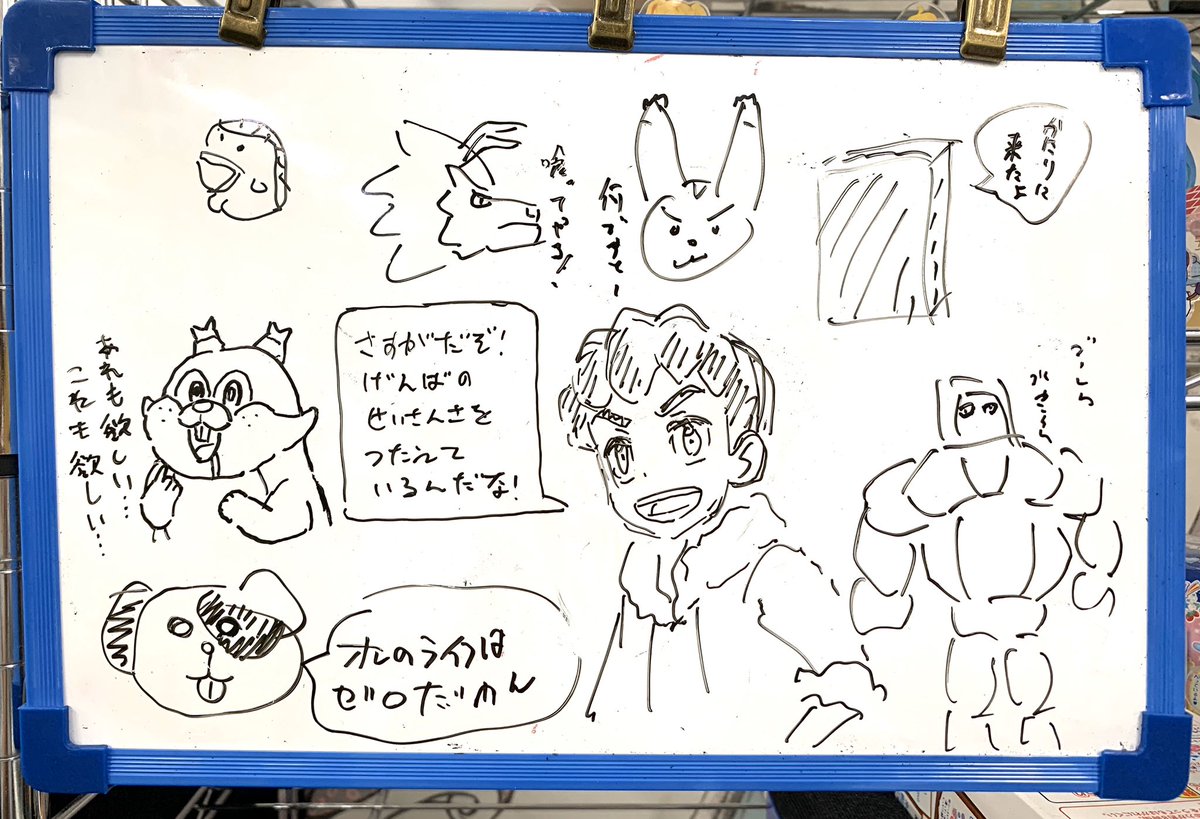 がたりに
来たよ
喰ってやる!
何ですとー
あれも欲しい…
これも欲しい…
さすがだぞ!
げんばの
せいさんさを
つたえて
いるんだな!
オレのライフは
ゼロだわん